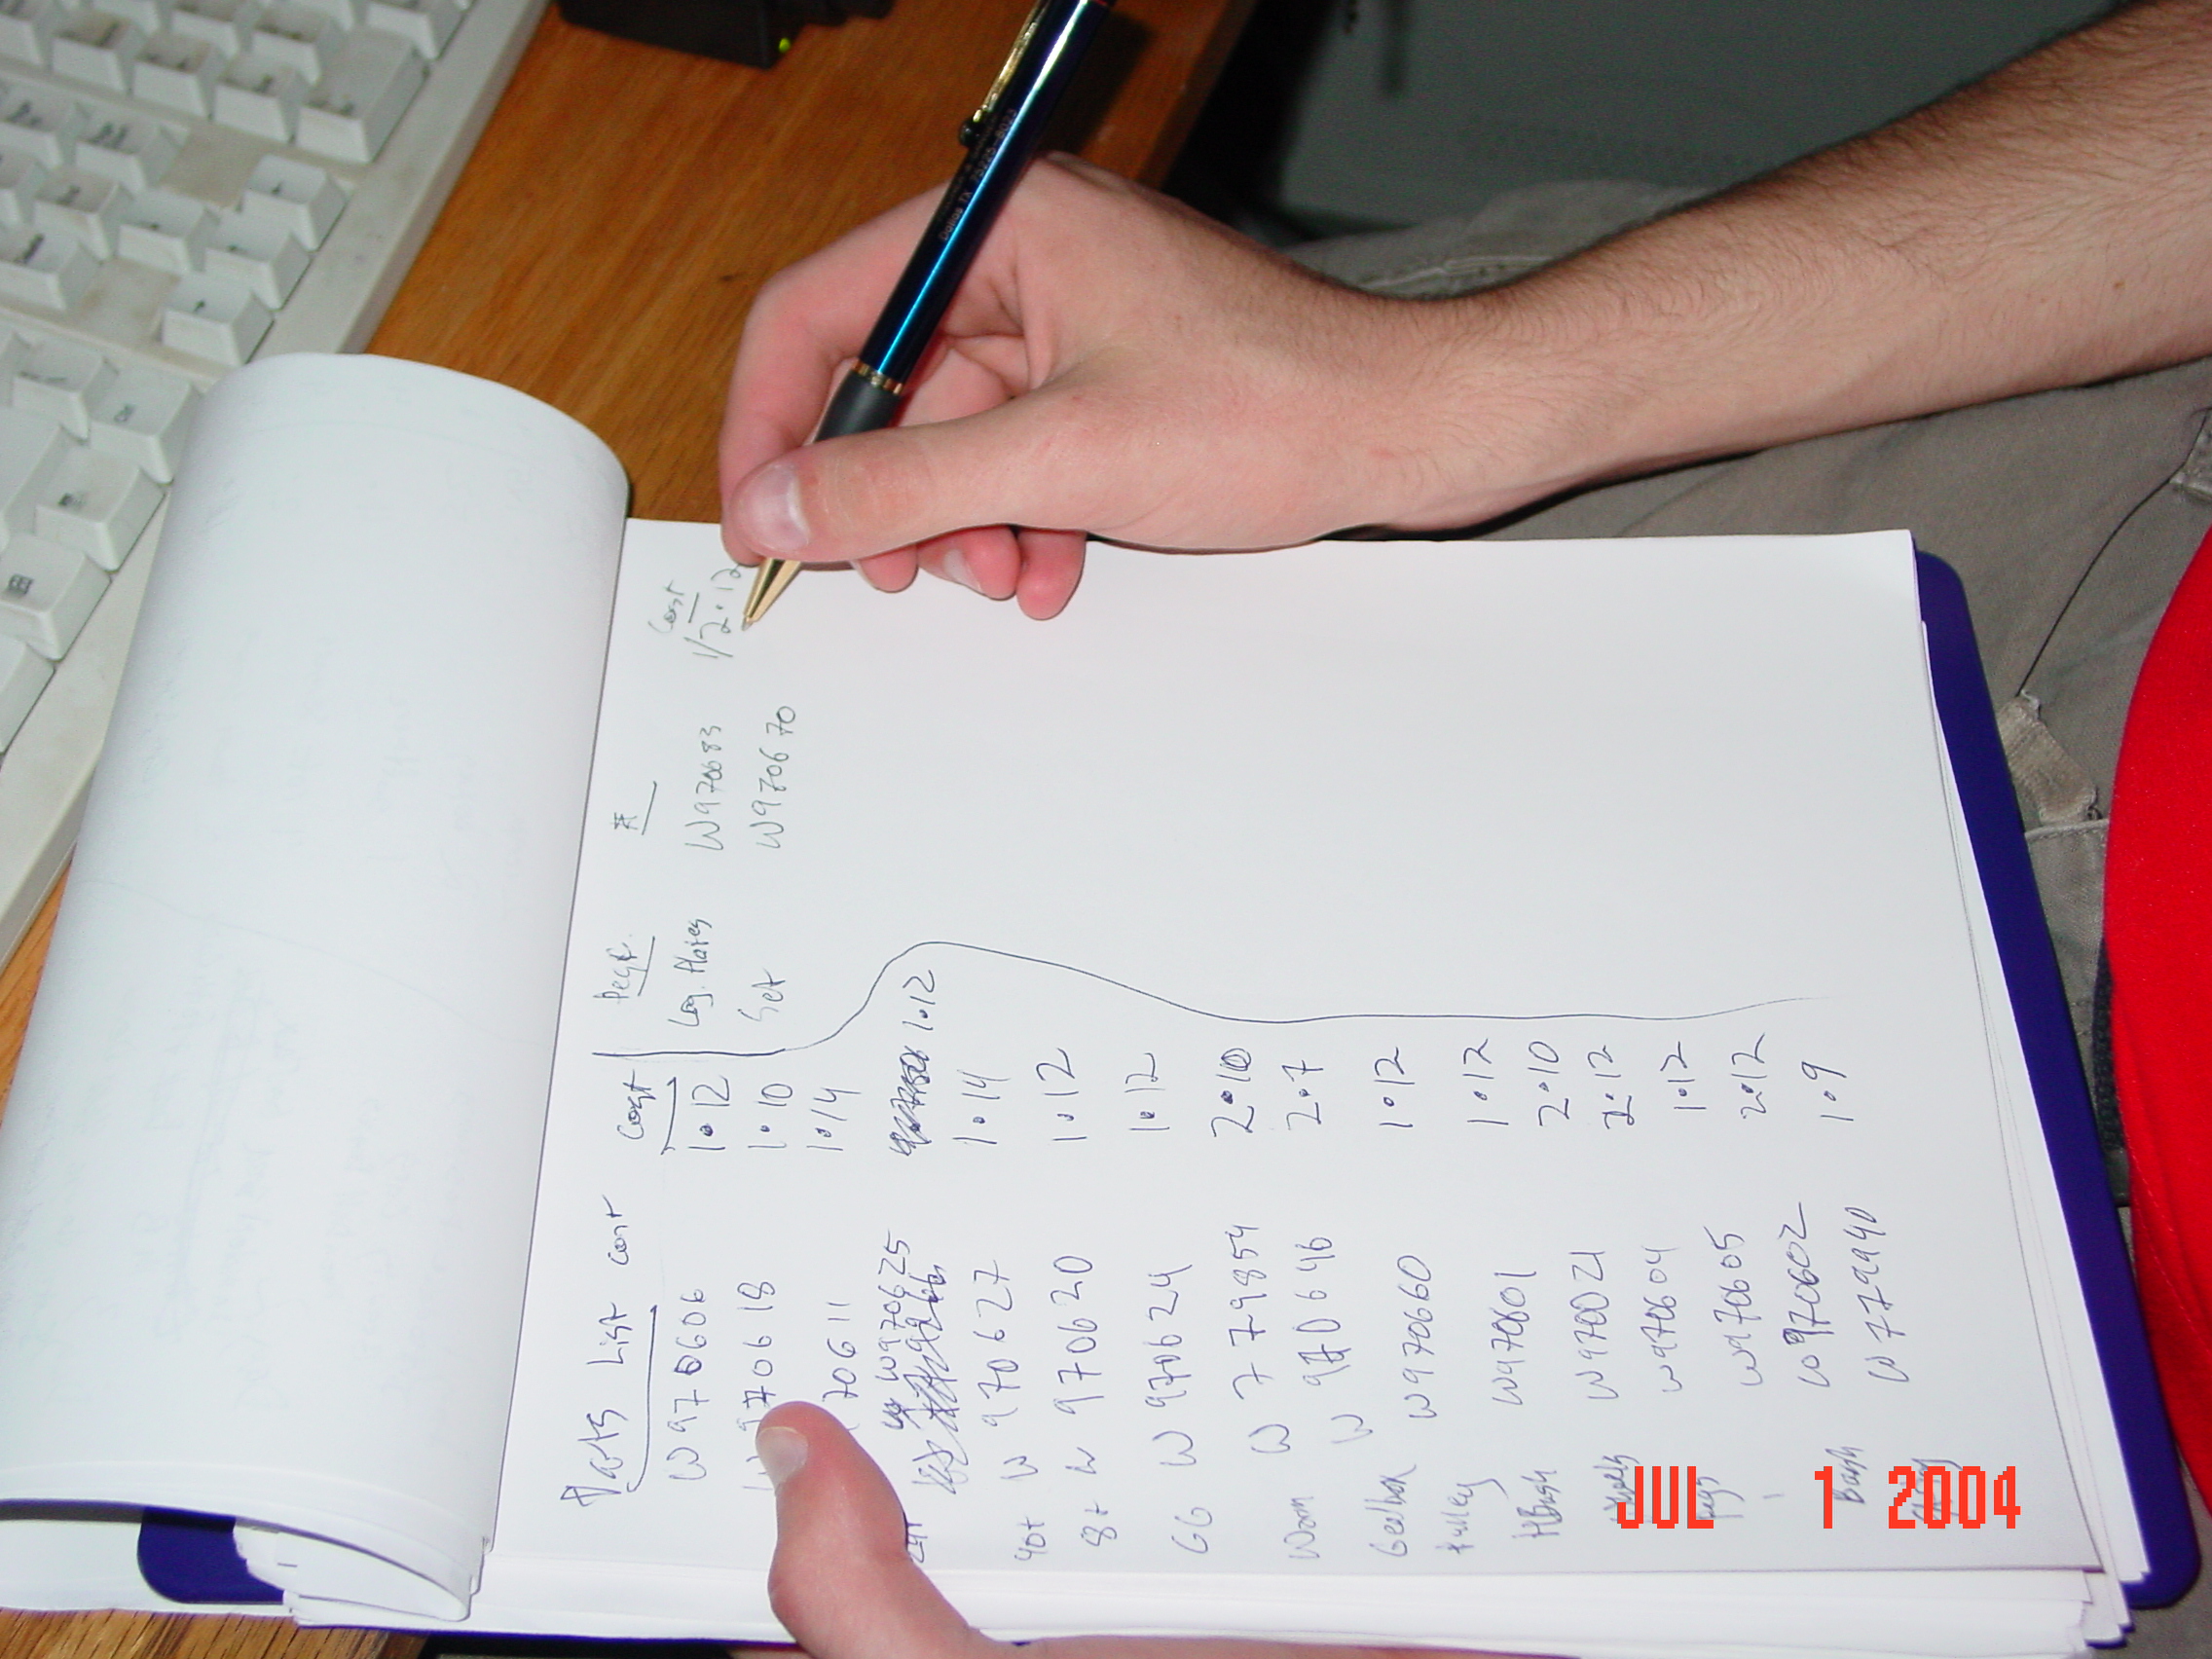 Parts List cost
Cost
W970606 1.12
970618 1.10
70611 1.14
W970625 1.12
40t W 970627 1.14
8t W 970620 1.12
GG W 970624 1.12
Worm W 779854 2.10
W 970646 2.7
Gearbox W970660 1.12
Pulley W970601 1.12
HBush W970021 2.10
W970604 2.12
Pegs W970605 1.12
Bush W970602 2.12
W779940 1.9
# Cost
Lag. Plates W970683 1/2.12
Set W970670
Dallas TX 75225-8023
JUL 1 2004